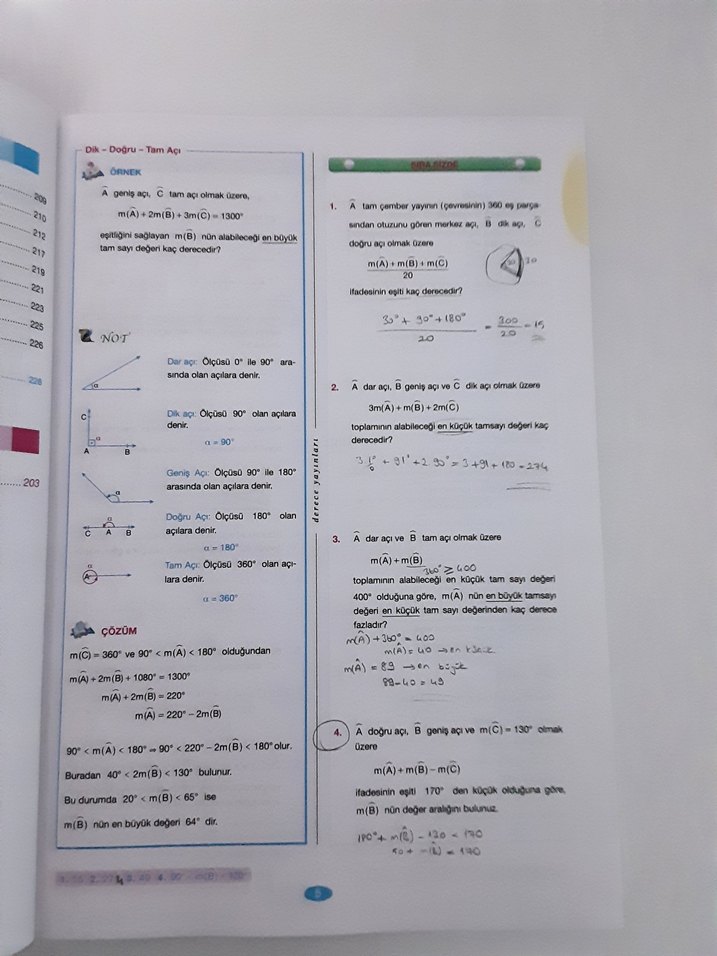 209
210
212
217
219
221
223
225
226
226
203
Dik – Doğru – Tam Açı
ÖRNEK
Â geniş açı, Ĉ tam açı olmak üzere,
m(Â) + 2m(B̂) + 3m(Ĉ) = 1300°
eşitliğini sağlayan m(B̂) nün alabileceği en büyük
tam sayı değeri kaç derecedir?
NOT
Dar açı: Ölçüsü 0° ile 90° ara-
sında olan açılara denir.
α
Dik açı: Ölçüsü 90° olan açılara
denir.
α = 90°
C
α
A B
Geniş Açı: Ölçüsü 90° ile 180°
arasında olan açılara denir.
α
Doğru Açı: Ölçüsü 180° olan
açılara denir.
α = 180°
α
C A B
Tam Açı: Ölçüsü 360° olan açı-
lara denir.
α = 360°
α
A
ÇÖZÜM
m(Ĉ) = 360° ve 90° < m(Â) < 180° olduğundan
m(Â) + 2m(B̂) + 1080° = 1300°
m(Â) + 2m(B̂) = 220°
m(Â) = 220° - 2m(B̂)
90° < m(Â) < 180° ⇒ 90° < 220° - 2m(B̂) < 180° olur.
Buradan 40° < 2m(B̂) < 130° bulunur.
Bu durumda 20° < m(B̂) < 65° ise
m(B̂) nün en büyük değeri 64° dir.
derece yayınları
SIRA SİZDE
1. Â tam çember yayının (çevresinin) 360 eş parça-
sından otuzunu gören merkez açı, B̂ dik açı, Ĉ
doğru açı olmak üzere
m(Â) + m(B̂) + m(Ĉ)
20
30 30
ifadesinin eşiti kaç derecedir?
30° + 90° + 180°
20
= 300
20
= 15
2. Â dar açı, B̂ geniş açı ve Ĉ dik açı olmak üzere
3m(Â) + m(B̂) + 2m(Ĉ)
toplamının alabileceği en küçük tamsayı değeri kaç
derecedir?
3.1° + 91° + 2.90° = 3 + 91 + 180 = 274
3. Â dar açı ve B̂ tam açı olmak üzere
m(Â) + m(B̂)
360° ≥ 400
toplamının alabileceği en küçük tam sayı değeri
400° olduğuna göre, m(Â) nün en büyük tamsayı
değeri en küçük tam sayı değerinden kaç derece
fazladır?
m(Â) + 360° = 400
m(Â) = 40 → en küçük
m(Â) = 89 → en büyük
89 - 40 = 49
4. Â doğru açı, B̂ geniş açı ve m(Ĉ) = 130° olmak
üzere
m(Â) + m(B̂) – m(Ĉ)
ifadesinin eşiti 170° den küçük olduğuna göre,
m(B̂) nün değer aralığını bulunuz.
180° + m(B̂) - 130 < 170
50 + -(B̂) < 170
5